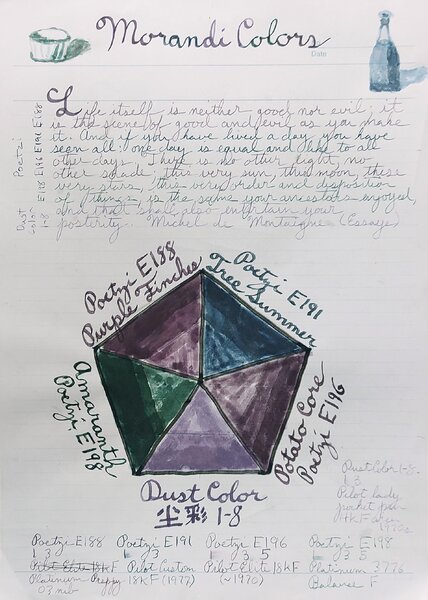 Morandi Colors
Date
Life itself is neither good nor evil; it
is the scene of good and evil as you make
it. And if you have lived a day, you have
seen all: one day is equal and like to all
other days. There is no other light, no
other shade; this very sun, this moon, these
very stars, this very order and disposition
of things, is the same your ancestors enjoyed,
and that shall also entertain your
posterity. Michel de Montaigne (Essays)
Poetzi
E188 E196 E191 E188
Dust
Color
1-8
Poetzi E188
Purple Finches
Poetzi E191
Tree Summer
Amaranth
Poetzi E198
Potato Core
Poetzi E196
Dust Color
尘彩 1-8
Dust Color 1-8
1 3
Pilot lady
pocket pen
14K F
1970s
Poetzi E188
1 3
Pilot Elite 18K F
Platinum Preppy
03 nib
Poetzi E191
3
Pilot Custom
18K F (1977)
Poetzi E196
3 5
Pilot Elite 18K F
(~1970)
Poetzi E198
3 5
Platinum 3776
Balance F